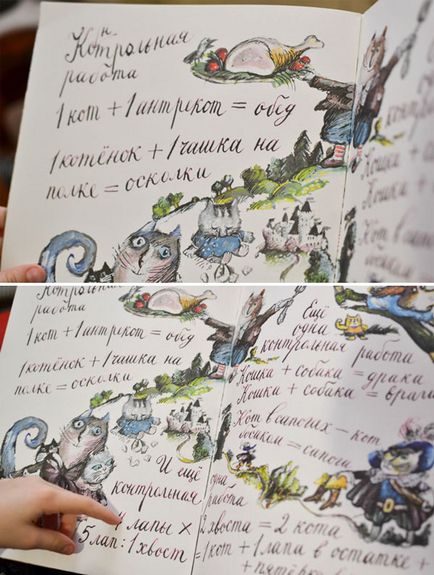 н
Котрольная
работа
1 кот + 1 антрекот = обед
1 котёнок + 1 чашка на
полке = осколки
Кошка +
Кошка +
Кот в сапог
босиком
Котрольная
работа
1 кот + 1 антрекот = обед
1 котёнок + 1 чашка на
полке = осколки
Ещё
одна
контрольная работа
Кошка + собака = драка
Кошка + собака = враги
Кот в сапогах – кот
босиком = сапоги
И ещё одна
контрольная работа
4 лапы × 2 хвоста = 2 кота
5 лап : 1 хвост = 1 кот + 1 лапа в остатке +
+ пятёрка